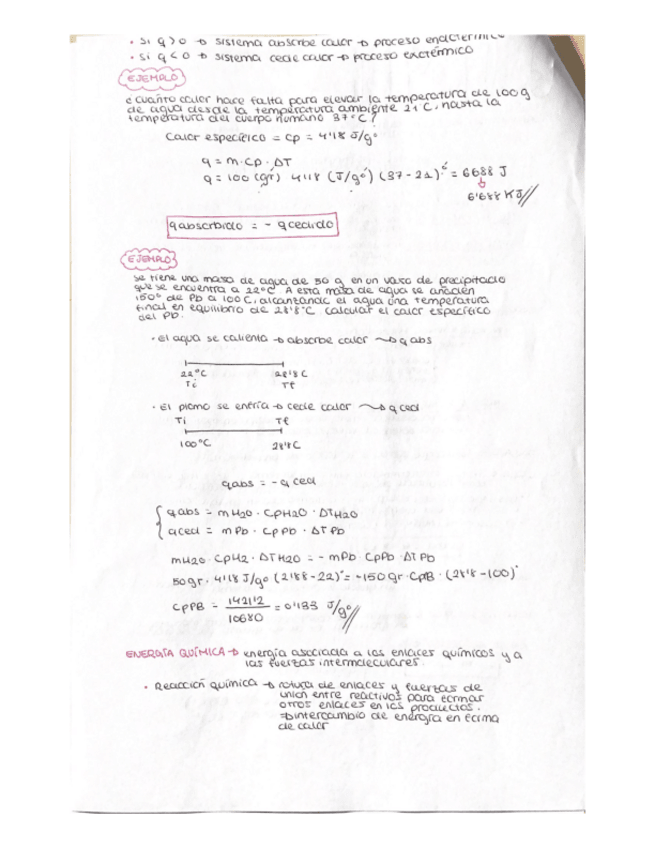 · Si q > 0 → sistema absorbe calor → proceso endotérmico
· Si q < 0 → sistema cede calor → proceso exotérmico
EJEMPLO
¿Cuánto calor hace falta para elevar la temperatura de 100 g
de agua desde la temperatura ambiente 21°C, hasta la
temperatura del cuerpo humano 37°C?
Calor específico = Cp = 4'18 J/g°
q = m·Cp·ΔT
q = 100 (gr) 4'18 (J/g°) (37-21)° = 6688 J
↓
6'688 KJ//
q absorbido = - q cedido
EJEMPLO
Se tiene una masa de agua de 50 g en un vaso de precipitado
que se encuentra a 22°C. A esta masa de agua se añaden
150° de Pb a 100 C, alcanzando el agua una temperatura
final en equilibrio de 28'8°C. Calcular el calor específico
del Pb.
· El agua se calienta → absorbe calor → q abs
22°C 28'8 C
Ti Tf
· El plomo se enfría → cede calor → q ced
Ti Tf
100°C 28'8 C
q abs = - q ced
q abs = mH2O · CpH2O · ΔTH2O
q ced = mPb · CpPb · ΔTPb
mH2O · CpH2 · ΔTH2O = - mPb · CpPb · ΔTPb
50gr · 4'18 J/g° (2'188-22)° = -150 gr · CpPB · (28'8-100)°
CpPB = 1421'2 / 10680 = 0'133 J/g°//
ENERGÍA QUÍMICA → energía asociada a los enlaces químicos y a
las fuerzas intermoleculares.
· Reacción química → rotura de enlaces y fuerzas de
unión entre reactivos para formar
otros enlaces en los productos.
⇒ intercambio de energía en forma
de calor